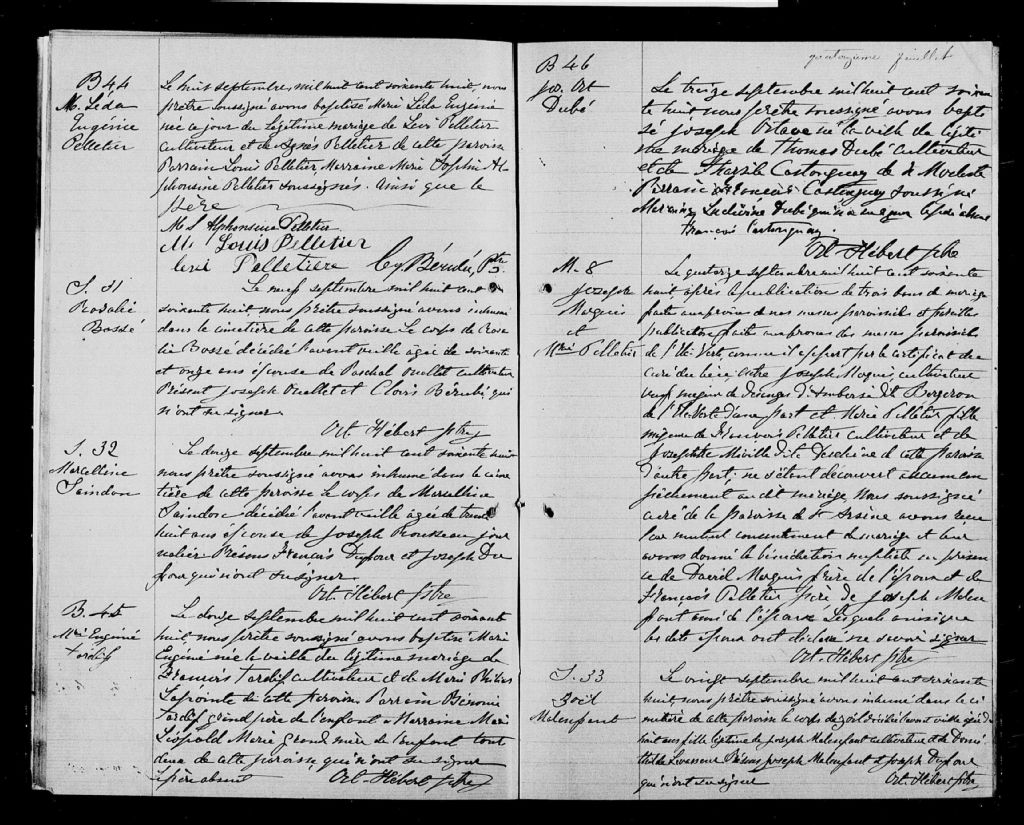 B 44
M. Léda
Eugénie
Pelletier
Le huit septembre, mil huit cent soixante huit, nous
prêtre soussigné avons baptisé Marie Léda Eugénie
née ce jour du légitime mariage de Levi Pelletier
cultivateur et de Agnès Pelletier de cette paroisse
Parrain Louis Pelletier, Marraine Marie Sophie Al-
phonsine Pelletier soussignés. Ainsi que le
père
M S Alphonsine Pelletier
Mr Louis Pelletier
Levi Pelletiere Cy Bérubé, Ptre
S. 31
Rosalie
Bossé
Le neuf septembre mil huit cent
soixante huit nous prêtre soussigné avons inhumé
dans le cimetière de cette paroisse le corps de Rosa
lie Bossé décédée l'avant veille agée de soixante
et onze ans épouse de Paschal Ouellet cultivateur
Présent Joseph Ouellet et Clovis Bérubé qui
n'ont su signer
Ort. Hébert ptre
S. 32
Marcelline
Saindon
Le douze septembre mil huit cent soixante huit
nous prêtre soussigné avons inhumé dans le cime
tière de cette paroisse le corps de Marcelline
Saindon décédée l'avant veille agée de trente
huit ans épouse de Joseph Rousseau jour
nalier Présens Francois Dufour et Joseph Du
four qui n'ont su signer
Ort. Hébert Ptre
B. 45
Mrie Eugénie
Tardif
Le douze septembre mil huit cent soixante
huit, nous prêtre soussigné avons baptisé Marie
Eugénie née la veille du légitime mariage de
Francois Tardif cultivateur et de Marie
Lapointe de cette paroisse Parrain Bénonie
Tardif grand père de l'enfant Marraine Marie
Léopold Marie grand mère de l'enfant tout
deux de cette paroisse, qui n'ont su signer
le père absent Ort. Hébert ptre
quatorzième juillet
B 46
Jos. Ort
Dubé
Le treize septembre mil huit cent soixan
te huit nous prêtre soussigné avons bapti
sé Joseph Octave né la veille du légiti
me mariage de Thomas Dubé cultivateur
et de Tharsile Castonguay de St Modeste
Parrain Francois Castonguay soussigné
Marraine Ludivine Dubé qui n'a su signer le père absent
François Castonguay.
Ort. Hébert ptre
M. 8
Joseph
Marquis
et
Mrie Pelletier
Le quatorze septembre mil huit cent soixante
huit après la publication de trois bans de mariage
faite aux prones de nos messes paroissiales et pareilles
publications faite aux prones des messes paroissiales
de l'Ile Verte, comme il appert par le certificat du
curé du lieu, entre Joseph Marquis, cultivateur
veuf majeur de Démerges d'Ambroise dit Bergeron
de l'Ile Verte d'une part et Marie Pelletier fille
majeure de Francois Pelletier cultivateur et de
Josephte Miville dite Deschène de cette paroisse
d'autre part, ne s'étant découvert aucun em
pêchement au dit mariage, Nous soussigné
curé de la paroisse de St Arsène avons reçu
leur mutuel consentement de mariage et leur
avons donné la bénédiction nuptiale en présen
ce de David Marquis frère de l'époux et de
François Pelletier père de Joseph Malen
fant ami de l'épouse Lesquels ainsi que
les dits époux ont déclaré ne savoir signer
Ort. Hébert ptre
S. 33
Zoïl
Malenfant
Le vingt septembre mil huit cent soixante
huit, nous prêtre soussigné avons inhumé dans le ci
metière de cette paroisse le corps de Zoïl décédé l'avant veille agé de
huit ans fils légitime de Joseph Malenfant cultivateur et de Domi
thilde Levasseur Présens Joseph Malenfant et Joseph Dufour
qui n'ont su signer Ort. Hébert Ptre